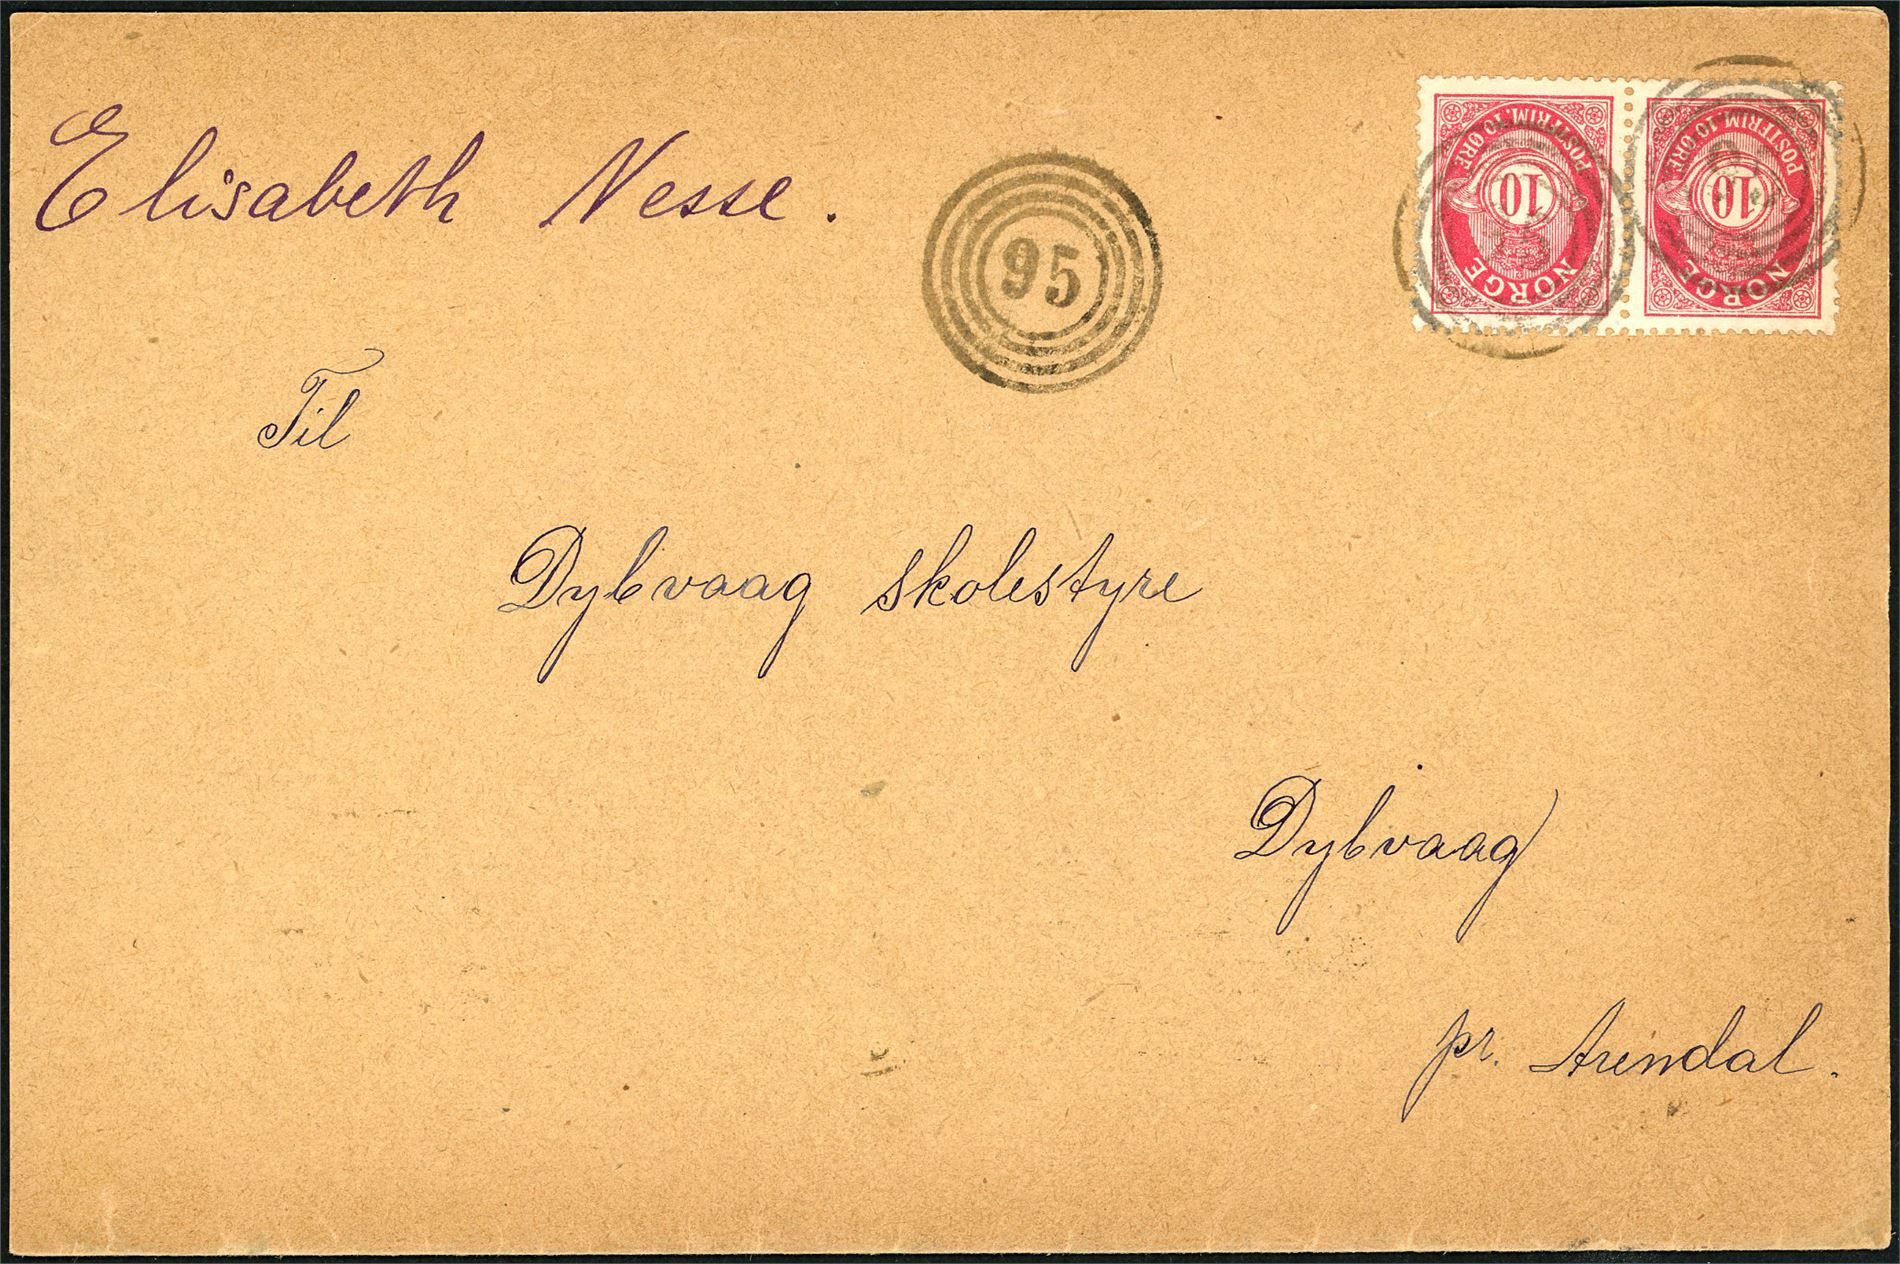 Elisabeth Nesse.
95
POSTFRIM. 10 ØRE
10
NORGE
POSTFRIM. 10 ØRE
10
NORGE
Til
Dybvaag skolestyre
Dybvaag
pr. Arendal.